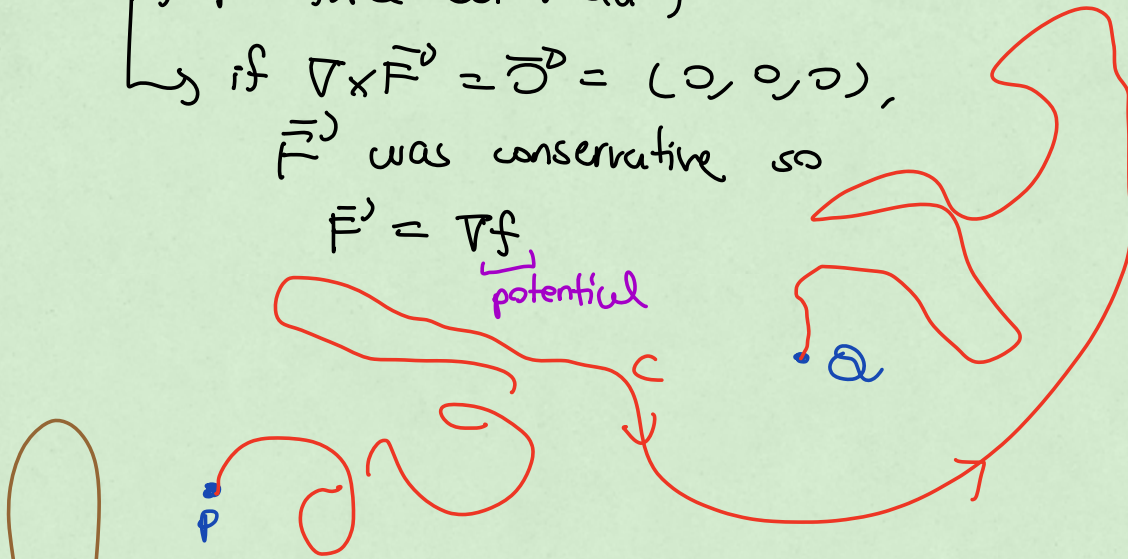 if ∇×F⃗ = 0⃗ = (0, 0, 0),
F⃗ was conservative so
F⃗ = ∇f
potential
C
Q
P